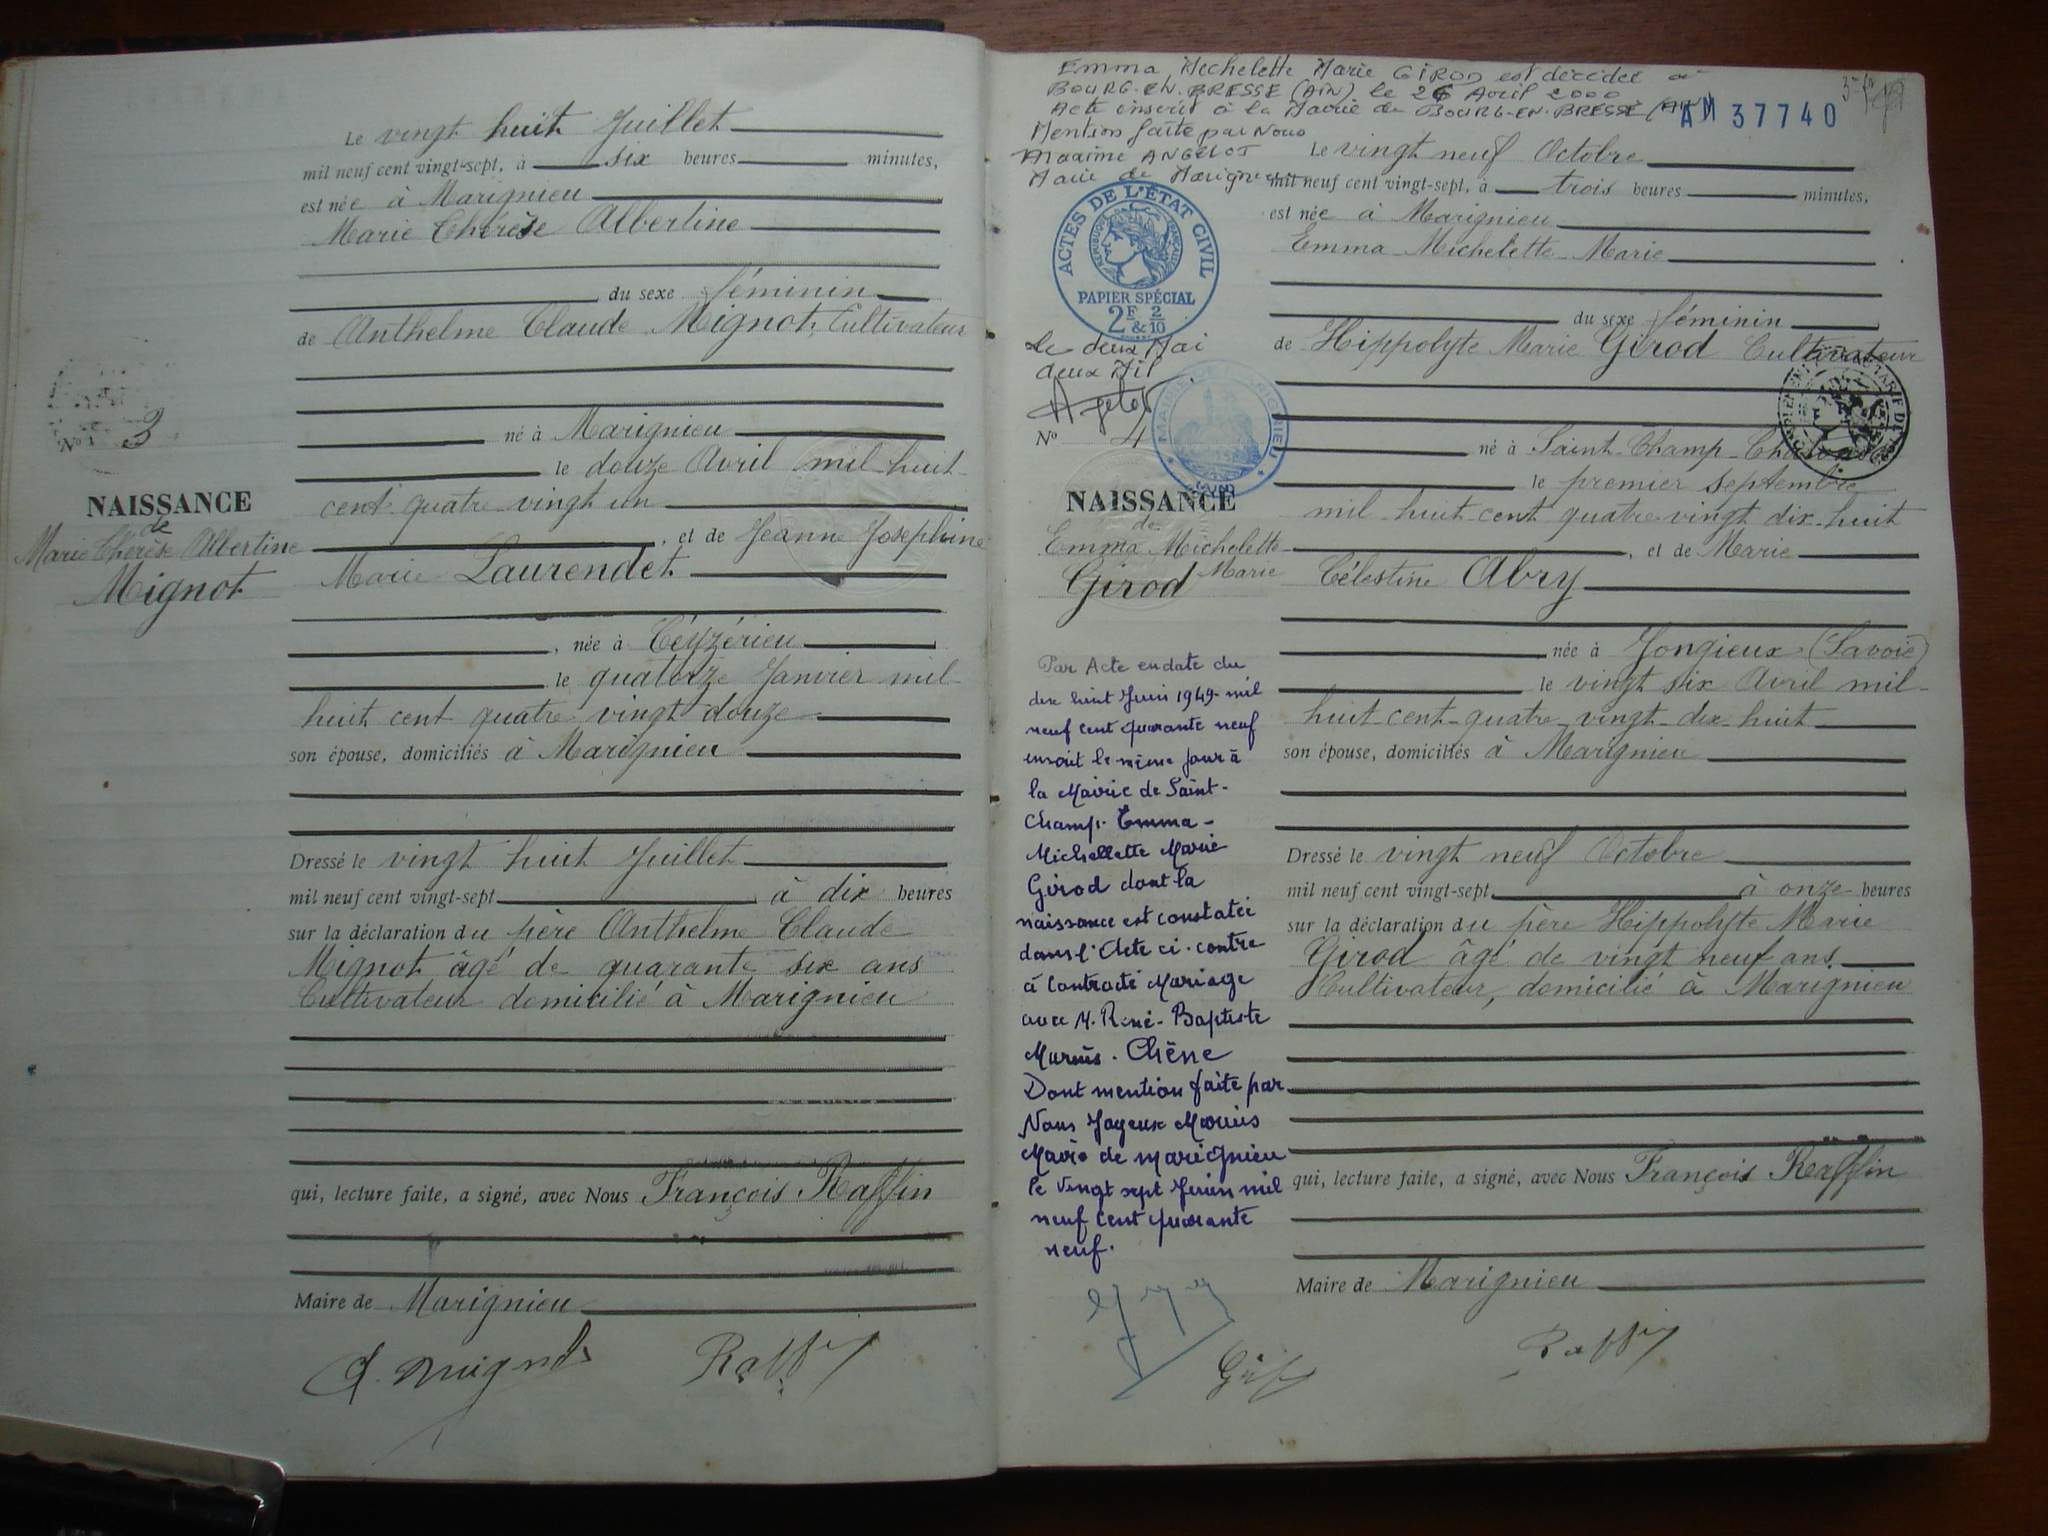 Le vingt huit Juillet
mil neuf cent vingt-sept, à six heures minutes,
est née à Marignieu
Marie Thérèse Albertine
du sexe féminin
de Anthelme Claude Mignot, Cultivateur
né à Marignieu
le douze Avril mil huit
cent quatre vingt un
, et de Jeanne Joséphine
Marie Laurendet
, née à Céyzérieu
le quatorze Janvier mil
huit cent quatre vingt douze
son épouse, domiciliés à Marignieu
Dressé le vingt huit Juillet
mil neuf cent vingt-sept à dix heures
sur la déclaration du père Anthelme Claude
Mignot âgé de quarante six ans
Cultivateur domicilié à Marignieu
qui, lecture faite, a signé, avec Nous François Raffin
Maire de Marignieu
Raffin
No 3
NAISSANCE
de
Marie Thérèse Albertine
Mignot
Emma Michelette Marie GIROD est décédée à
BOURG-EN-BRESSE (AIN) le 26 Avril 2000
Acte inscrit à la Mairie de BOURG-EN-BRESSE
Mention faite par Nous
Maxime ANGELOT
Maire de Marignieu
AM 37740
ACTES DE L'ÉTAT CIVIL
RÉPUBLIQUE FRANÇAISE
PAPIER SPÉCIAL
2F & 2/10
Le deux Mai
deux Mil
MAIRIE DE MARIGNIEU
No 4
NAISSANCE
de
Emma Michelette
Marie
Girod
Par Acte en date du
dix huit Juin 1949 mil
neuf cent quarante neuf
inscrit le même jour à
la Mairie de Saint-
Champ. Emma-
Michellette Marie
Girod dont la
naissance est constatée
dans l'Acte ci-contre
à contracté Mariage
avec M. René-Baptiste
Marius. Chêne
Dont mention faite par
Nous Joyeux Marius
Maire de Marignieu
le Vingt sept Juin mil
neuf cent quarante
neuf.
Le vingt neuf Octobre
mil neuf cent vingt-sept, à trois heures minutes,
est née à Marignieu
Emma Michelette Marie
du sexe féminin
de Hippolyte Marie Girod Cultivateur
né à Saint-Champ-Chatonod
le premier septembre
mil huit cent quatre vingt dix huit
, et de Marie
Célestine Abry
née à Jongieux (Savoie)
le vingt six Avril mil
huit cent quatre vingt dix huit
son épouse, domiciliés à Marignieu
Dressé le vingt neuf Octobre
mil neuf cent vingt-sept à onze heures
sur la déclaration du père Hippolyte Marie
Girod âgé de vingt neuf ans.
Cultivateur, domicilié à Marignieu
qui, lecture faite, a signé, avec Nous François Raffin
Maire de Marignieu
Raffin